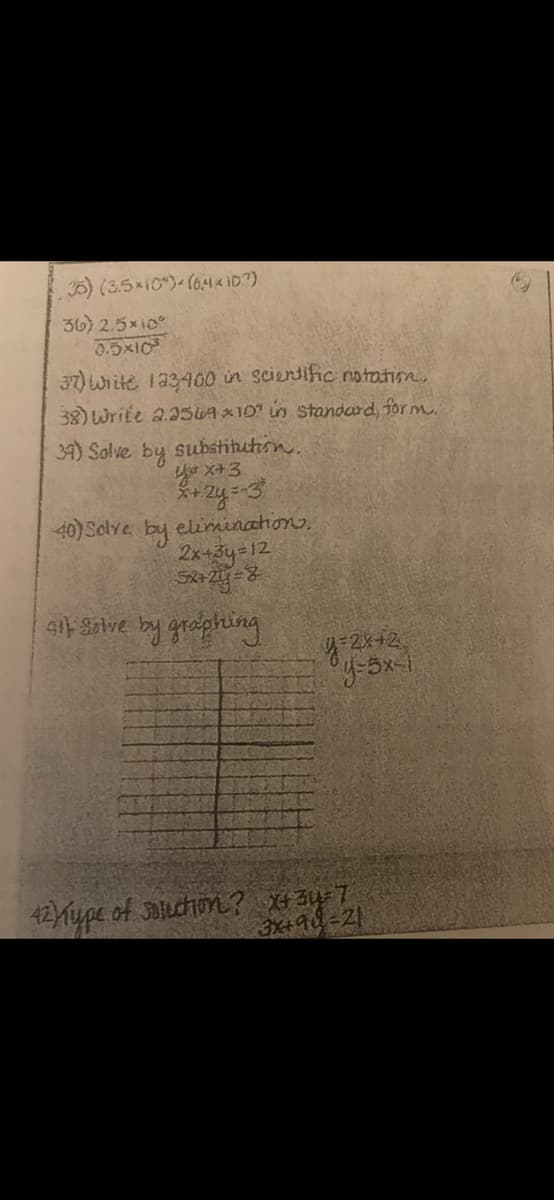 35) (3.5×10⁴)·(6.4×10⁷)
36) 2.5×10⁶
0.5×10³
37) Write 123,400 in scientific notation.
38) Write in standard form.
39) Solve by substitution.
y= x+3
x+2y=-3
40) Solve by elimination.
2x+3y=12
5x+2y=8
41) Solve by graphing
y=2x+2
y=5x-1
42) Type of solution? x+3y=7
3x+9y=21